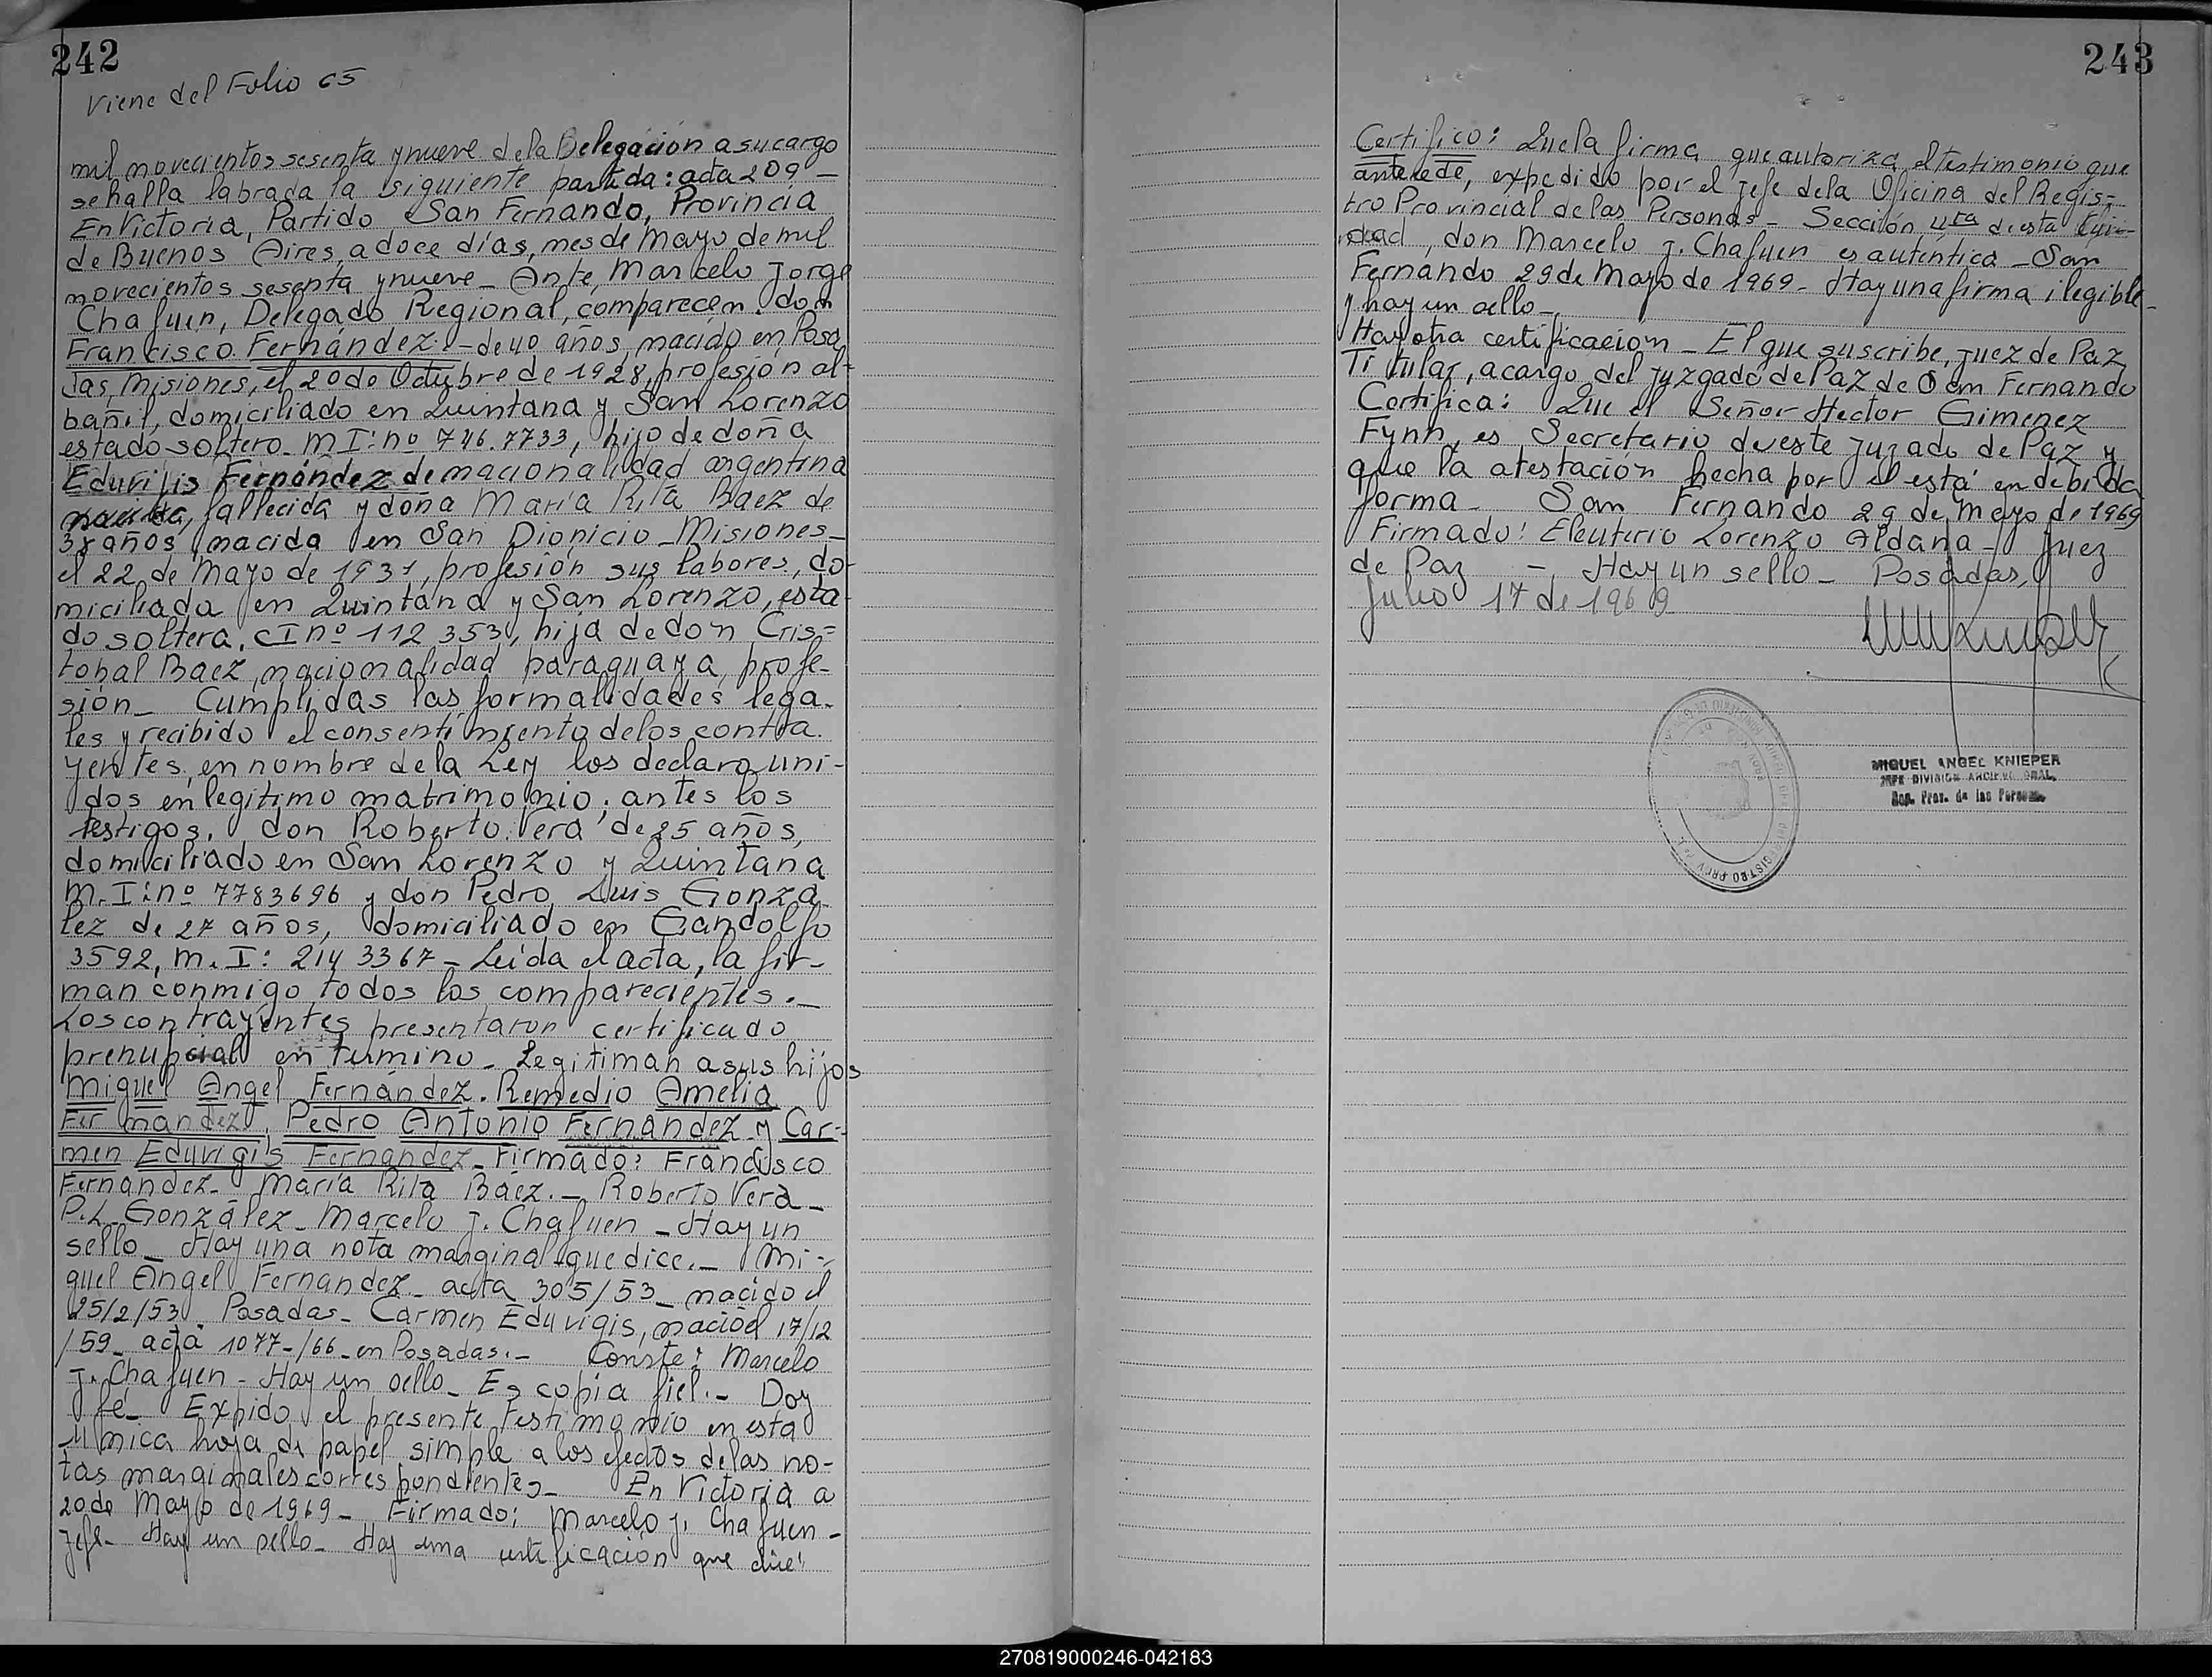 242
Viene del Folio 65
mil novecientos sesenta y nueve de la Delegación a su cargo
se halla labrada la siguiente partida: acta 209 –
En Victoria, Partido San Fernando, Provincia
de Buenos Aires, a doce días, mes de Mayo de mil
novecientos sesenta y nueve – Ante, Marcelo Jorge
Chafuen, Delegado Regional, comparecen: don
Francisco Fernández. – de 40 años, nacido en Posa
das, Misiones, el 20 de Octubre de 1928, profesión al-
bañil, domiciliado en Quintana y San Lorenzo
estado soltero. M I: nº 746.7733, hijo de doña
Eduvijis Fernández de nacionalidad argentina
fallecida y doña María Rita Baez de
38 años, nacida en San Dionicio – Misiones –
el 22 de Mayo de 1931, profesión sus labores, do-
miciliada en Quintana y San Lorenzo, esta-
do soltera. CI nº 112,353, hija de don Cris=
tobal Baez, nacionalidad paraguaya, profe-
sión – Cumplidas las formalidades lega-
les y recibido el consentimiento de los contra.
yentes, en nombre de la Ley los declaro uni-
dos en legitimo matrimonio. antes los
testigos. don Roberto Vera de 25 años,
domiciliado en San Lorenzo y Quintana
M. I: nº 7783696 y don Pedro Luis Gonza-
lez de 27 años, domiciliado en Gandolfo
3592, M. I: 214 3367 – Leída el acta, la fir-
man conmigo todos los comparecientes. –
Los contrayentes presentaron certificado
prenupcial en termino – Legitiman a sus hijos
Miguel Angel Fernández. Remedio Amelia
Fernandez, Pedro Antonio Fernández y Car=
men Eduvigis Fernandez – Firmado: Francisco
Fernandez – María Rita Baez. – Roberto Vera –
P. L. González – Marcelo J. Chafuen – Hay un
sello – Hay una nota marginal que dice. – Mi-
guel Angel Fernandez – acta 305/53 – nacido el
25/2/53. Posadas – Carmen Eduvigis, nació el 17/12
/59 – acta 1077-/66 – en Posadas. – Conste: Marcelo
J. Chafuen – Hay un sello – Es copia fiel. – Doy
fé – Expido el presente testimonio en esta
unica hoja de papel simple a los efectos de las no-
tas marginales correspondientes – En Victoria a
20 de Mayo de 1969 – Firmado: Marcelo J. Chafuen –
Jefe – Hay un sello – Hay una certificación que dice:
243
Certifico: Que la firma que autoriza el testimonio que
antecede, expedido por el Jefe de la Oficina del Regis=
tro Provincial de las Personas – Sección 4ta de esta
dad, don Marcelo J. Chafuen es auténtica – San
Fernando 29 de Mayo de 1969 – Hay una firma ilegible –
y hay un sello –
Hay otra certificación – El que suscribe, Juez de Paz
Titular, a cargo del Juzgado de Paz de San Fernando
Certifica: Que el Señor Hector Gimenez
Fynn, es Secretario de este Juzgado de Paz y
que la atestación hecha por el está en debida
forma – San Fernando 29 de Mayo de 1969
Firmado: Eleuterio Lorenzo Aldana – Juez
de Paz – Hay un sello – Posadas,
Julio 17 de 1969
MIGUEL ANGEL KNIEPER
JEFE DIVISION ARCHIVO GRAL.
Reg. Prov. de las Personas
270819000246-042183